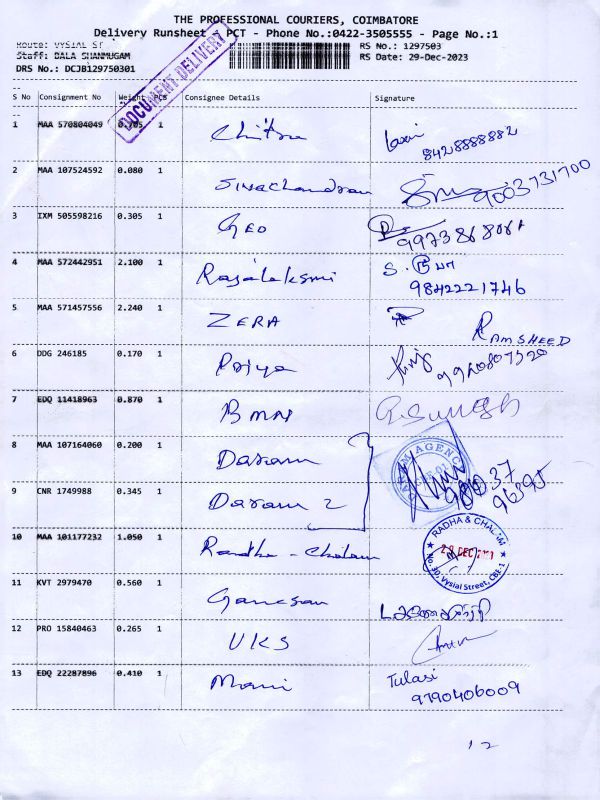 THE PROFESSIONAL COURIERS, COIMBATORE
Delivery Runsheet - PCT - Phone No.:0422-3505555 - Page No.:1
Route: VYSIAL ST
RS No.: 1297503
Staff: BALA SHANMUGAM
RS Date: 29-Dec-2023
DRS No.: DCJB129750301
DOCUMENT DELIVERY
S No Consignment No Weight PCS Consignee Details Signature
1 MAA 570804049 0.705 1 Chitra
8428888882
2 MAA 107524592 0.080 1 Sivachandran
9003731700
3 IXM 505598216 0.305 1 GEO
4 MAA 572442951 2.100 1 Rajalakshmi
9842221746
5 MAA 571457556 2.240 1 ZERA RAMSHEED
6 DDG 246185 0.170 1 Priya
7 EDQ 11418963 0.870 1 BMN
8 MAA 107164060 0.200 1 Daram
9 CNR 1749988 0.345 1 Daram 2
10 MAA 101177232 1.050 1 Radha - Chalam
RADHA & CHALAM
No. 30, Vysial Street, CBE-1
11 KVT 2979470 0.560 1 Ganesan
12 PRO 15840463 0.265 1 UKS
13 EDQ 22287896 0.410 1 Mani Tulasi
9790406009
12